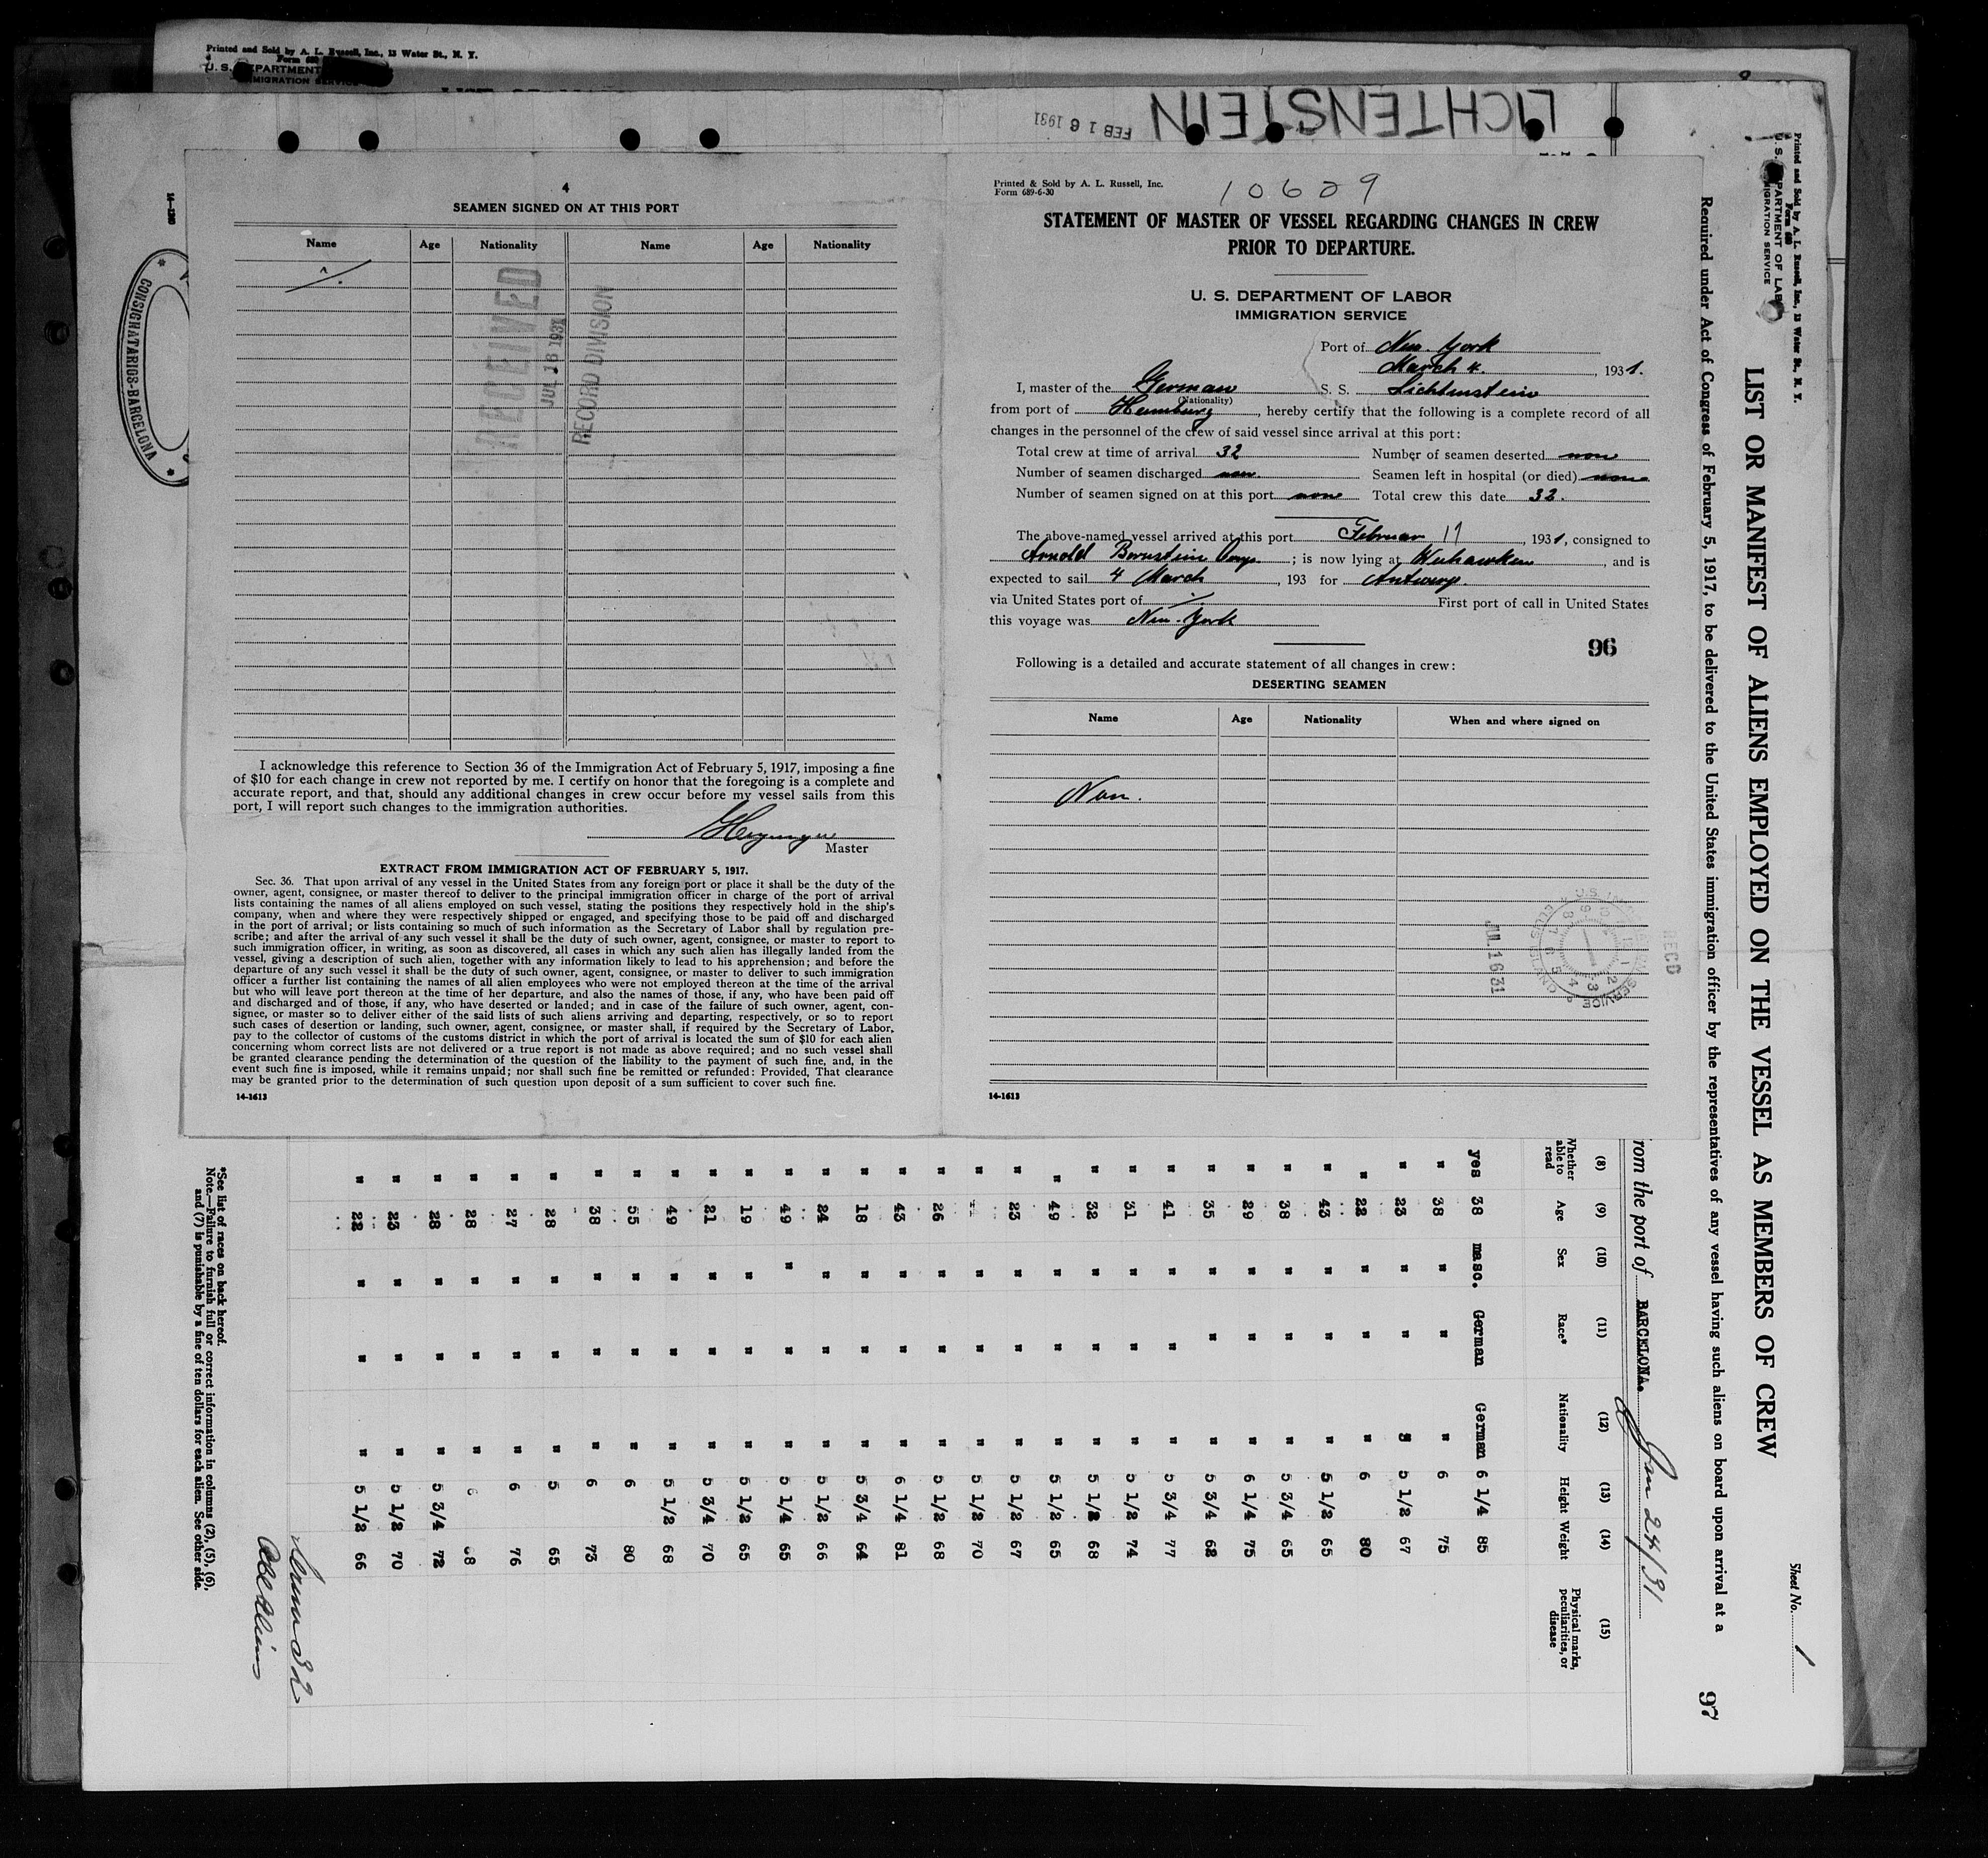 Printed and Sold by A. L. Russell, Inc., 13 Water St., N. Y.
Form 680
U. S. DEPARTMENT
IMMIGRATION SERVICE
LICHTENSTEIN
FEB 16 1931
14-1240
CONSIGNATARIOS-BARCELONA
4
SEAMEN SIGNED ON AT THIS PORT
Name Age Nationality Name Age Nationality
RECEIVED
JUL 16 1931
RECORD DIVISION
I acknowledge this reference to Section 36 of the Immigration Act of February 5, 1917, imposing a fine
of $10 for each change in crew not reported by me. I certify on honor that the foregoing is a complete and
accurate report, and that, should any additional changes in crew occur before my vessel sails from this
port, I will report such changes to the immigration authorities.
Master
EXTRACT FROM IMMIGRATION ACT OF FEBRUARY 5, 1917.
Sec. 36. That upon arrival of any vessel in the United States from any foreign port or place it shall be the duty of the
owner, agent, consignee, or master thereof to deliver to the principal immigration officer in charge of the port of arrival
lists containing the names of all aliens employed on such vessel, stating the positions they respectively hold in the ship's
company, when and where they were respectively shipped or engaged, and specifying those to be paid off and discharged
in the port of arrival; or lists containing so much of such information as the Secretary of Labor shall by regulation pre-
scribe; and after the arrival of any such vessel it shall be the duty of such owner, agent, consignee, or master to report to
such immigration officer, in writing, as soon as discovered, all cases in which any such alien has illegally landed from the
vessel, giving a description of such alien, together with any information likely to lead to his apprehension; and before the
departure of any such vessel it shall be the duty of such owner, agent, consignee, or master to deliver to such immigration
officer a further list containing the names of all alien employees who were not employed thereon at the time of the arrival
but who will leave port thereon at the time of her departure, and also the names of those, if any, who have been paid off
and discharged and of those, if any, who have deserted or landed; and in case of the failure of such owner, agent, con-
signee, or master so to deliver either of the said lists of such aliens arriving and departing, respectively, or so to report
such cases of desertion or landing, such owner, agent, consignee, or master shall, if required by the Secretary of Labor,
pay to the collector of customs of the customs district in which the port of arrival is located the sum of $10 for each alien
concerning whom correct lists are not delivered or a true report is not made as above required; and no such vessel shall
be granted clearance pending the determination of the question of the liability to the payment of such fine, and, in the
event such fine is imposed, while it remains unpaid; nor shall such fine be remitted or refunded: Provided, That clearance
may be granted prior to the determination of such question upon deposit of a sum sufficient to cover such fine.
14-1613
Printed & Sold by A. L. Russell, Inc.
Form 689-6-30
10629
STATEMENT OF MASTER OF VESSEL REGARDING CHANGES IN CREW
PRIOR TO DEPARTURE.
U. S. DEPARTMENT OF LABOR
IMMIGRATION SERVICE
Port of New-York
March 4. , 1931.
I, master of the German S. S. Lichtenstein
(Nationality)
from port of Hamburg , hereby certify that the following is a complete record of all
changes in the personnel of the crew of said vessel since arrival at this port:
Total crew at time of arrival 32 Number of seamen deserted none
Number of seamen discharged none Seamen left in hospital (or died) none
Number of seamen signed on at this port none Total crew this date 32.
The above-named vessel arrived at this port Februar 17 , 1931, consigned to
Arnold Bernstein Corp. ; is now lying at Weehawken , and is
expected to sail 4 March , 193 for Antwerp.
via United States port of First port of call in United States
this voyage was New-York
96
Following is a detailed and accurate statement of all changes in crew:
DESERTING SEAMEN
Name Age Nationality When and where signed on
Non.
JUL 16 31
RECD
14-1613
Printed and Sold by A. L. Russell, Inc., 13 Water St., N. Y.
Form 680
U. S. DEPARTMENT OF LABOR
IMMIGRATION SERVICE
Sheet No. 1
LIST OR MANIFEST OF ALIENS EMPLOYED ON THE VESSEL AS MEMBERS OF CREW
Required under Act of Congress of February 5, 1917, to be delivered to the United States immigration officer by the representatives of any vessel having such aliens on board upon arrival at a
97
from the port of BARCELONA. Jan 24/31
(8) (9) (10) (11) (12) (13) (14) (15)
Whether able to read Age Sex Race* Nationality Height Weight Physical marks, peculiarities, or disease
yes 38 masc. German German 6 1/4 85
" 38 " " " 6 75
" 23 " " " 5 1/2 67
" 22 " " " 6 80
" 43 " " " 5 1/2 65
" 38 " " " 5 3/4 65
" 29 " " " 6 1/4 75
" 35 " " " 5 3/4 62
" 41 " " " 5 3/4 77
" 31 " " " 5 1/2 74
" 32 " " " 5 1/2 68
" 49 " " " 5 1/2 65
" 23 " " " 5 1/2 67
" " " " 5 1/2 70
" 26 " " " 5 1/2 68
" 43 " " " 6 1/4 81
" 18 " " " 5 3/4 64
" 24 " " " 5 1/2 66
" 49 " " " 5 1/4 65
" 19 " " " 5 1/2 65
" 21 " " " 5 3/4 70
" 49 " " " 5 1/2 68
" 55 " " " 6 80
" 38 " " " 6 73
" 28 " " " 5 65
" 27 " " " 6 76
" 28 " " " 6 68
" 28 " " " 5 3/4 72
" 23 " " " 5 1/2 70
" 22 " " " 5 1/2 66
*See list of races on back hereof.
Note.—Failure to furnish full or correct information in columns (2), (5), (6),
and (7) is punishable by a fine of ten dollars for each alien. See other side.